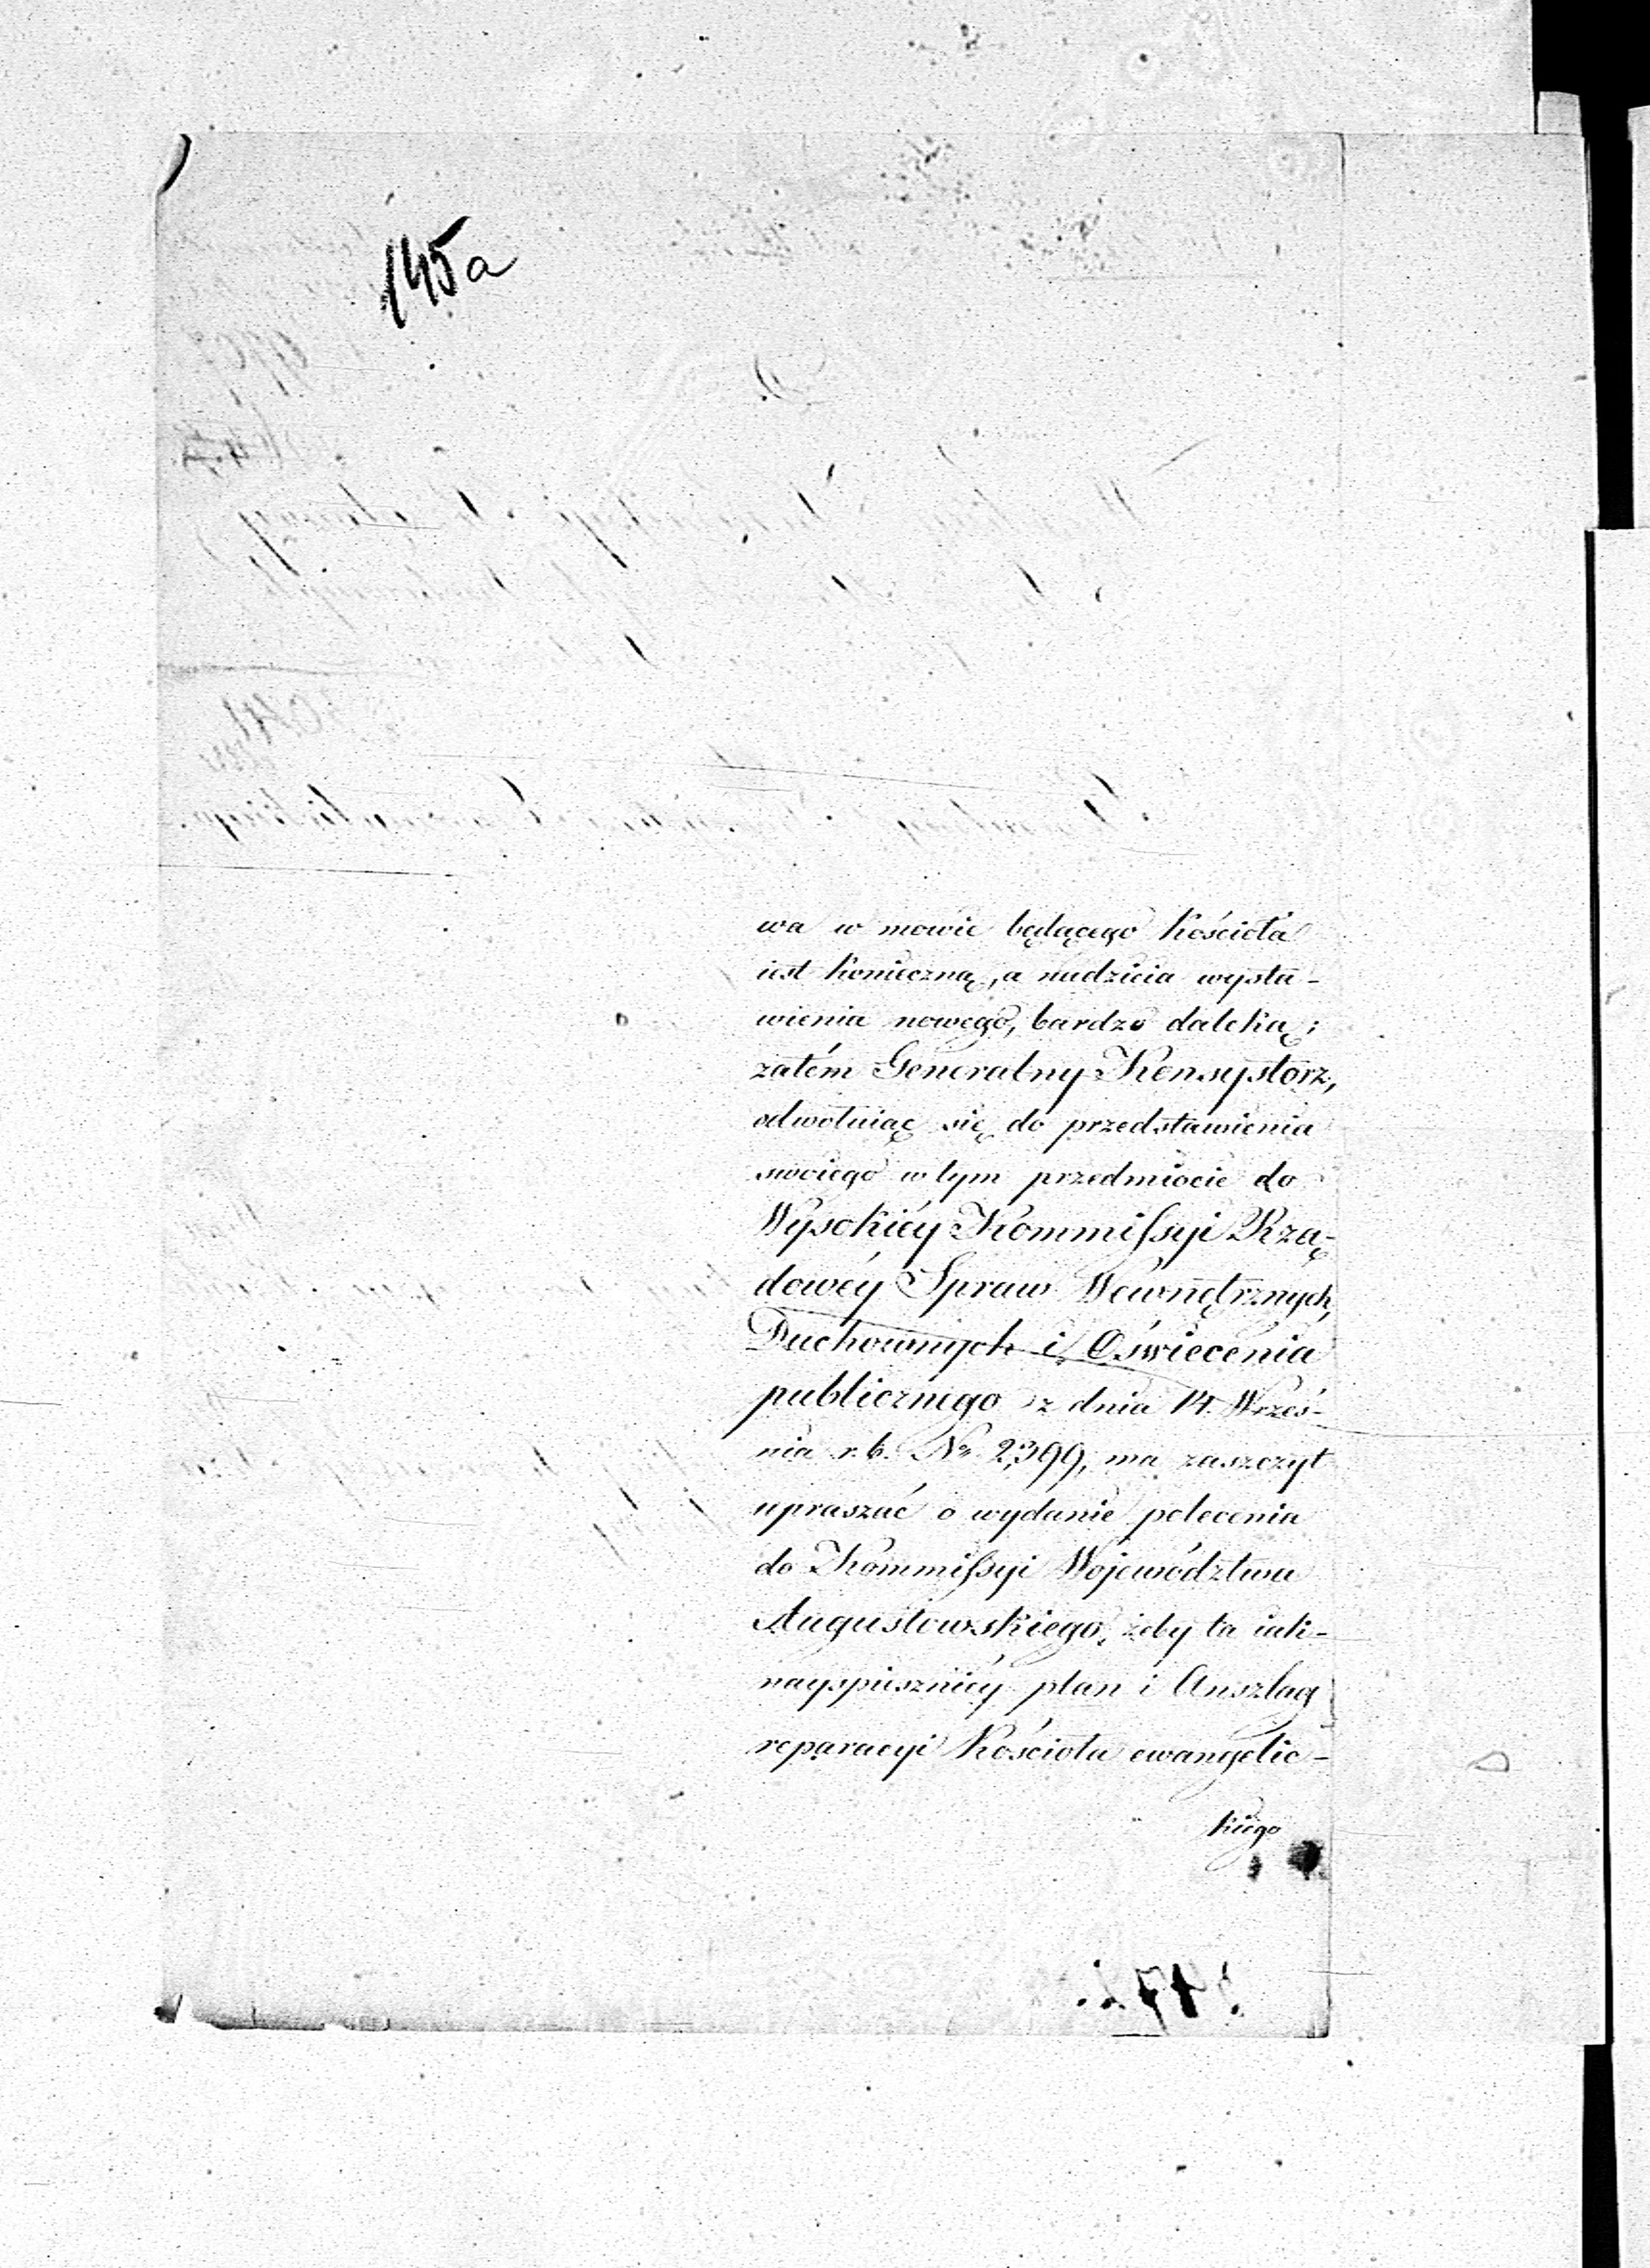 145a
wa w mowie będącego kościoła
iest konieczną, a nadzieia wysta-
wienia nowego, bardzo daleką;
zatém Generalny Konsystorz,
odwołuiąc się do przedstawienia
swoiego w tym przedmiocie do
Wysokiéy Kommissyi Rzą-
dowéy Spraw Wewnętrznych,
Duchownych i Oświecenia
publicznego z dnia 14. Wrześ-
nia r. b. No 2,399, ma zaszczyt
upraszać o wydanie polecenia
do Kommissyi Województwa
Augustowskiego, żeby ta iak-
nayspieszniéy plan i Anszlag
reparacyi Kościoła ewangelic-
kiego